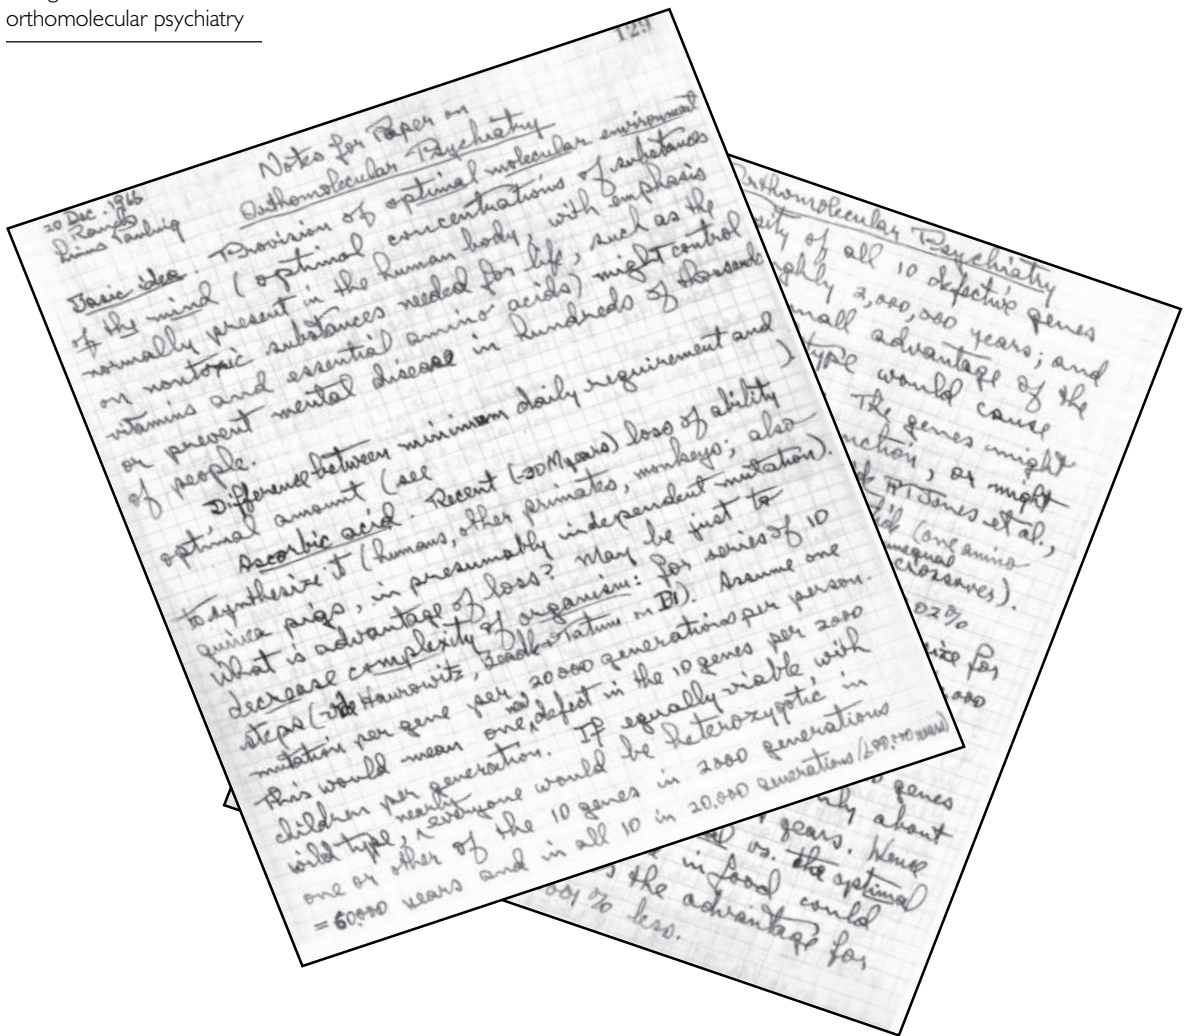 orthomolecular psychiatry
129
Notes for Paper on
Orthomolecular Psychiatry
20 Dec. 1966
Linus Pauling
Basic idea. Provision of optimal molecular environment
of the mind (optimal concentrations of substances
normally present in the human body, with emphasis
on nontoxic substances needed for life, such as the
vitamins and essential amino acids) might control
or prevent mental disease in hundreds of thousands
of people.
Difference between minimum daily requirement and
optimal amount (see )
Ascorbic acid. Recent (~20Myears) loss of ability
to synthesize it (humans, other primates, monkeys; also
guinea pigs, in presumably independent mutation).
What is advantage of loss? May be just to
decrease complexity of organism: for series of 10
steps (vide Haurowitz, Beadle + Tatum on B1). Assume one
mutation per gene per 20000 generations per person.
This would mean one new defect in the 10 genes per 2000
children per generation. If equally viable with
wild type, nearly everyone would be heterozygotic in
one or other of the 10 genes in 2000 generations
= 60,000 years and in all 10 in 20,000 generations (600,000 years)
Orthomolecular Psychiatry
of all 10 defective genes
2,000,000 years; and
small advantage of the
type would cause
The genes might
or might
Jones et al.,
(one amino
unequal
crossover).
02%
for
000
genes
about
years. Hence
vs. the optimal
in food could
the advantage for
001% less.